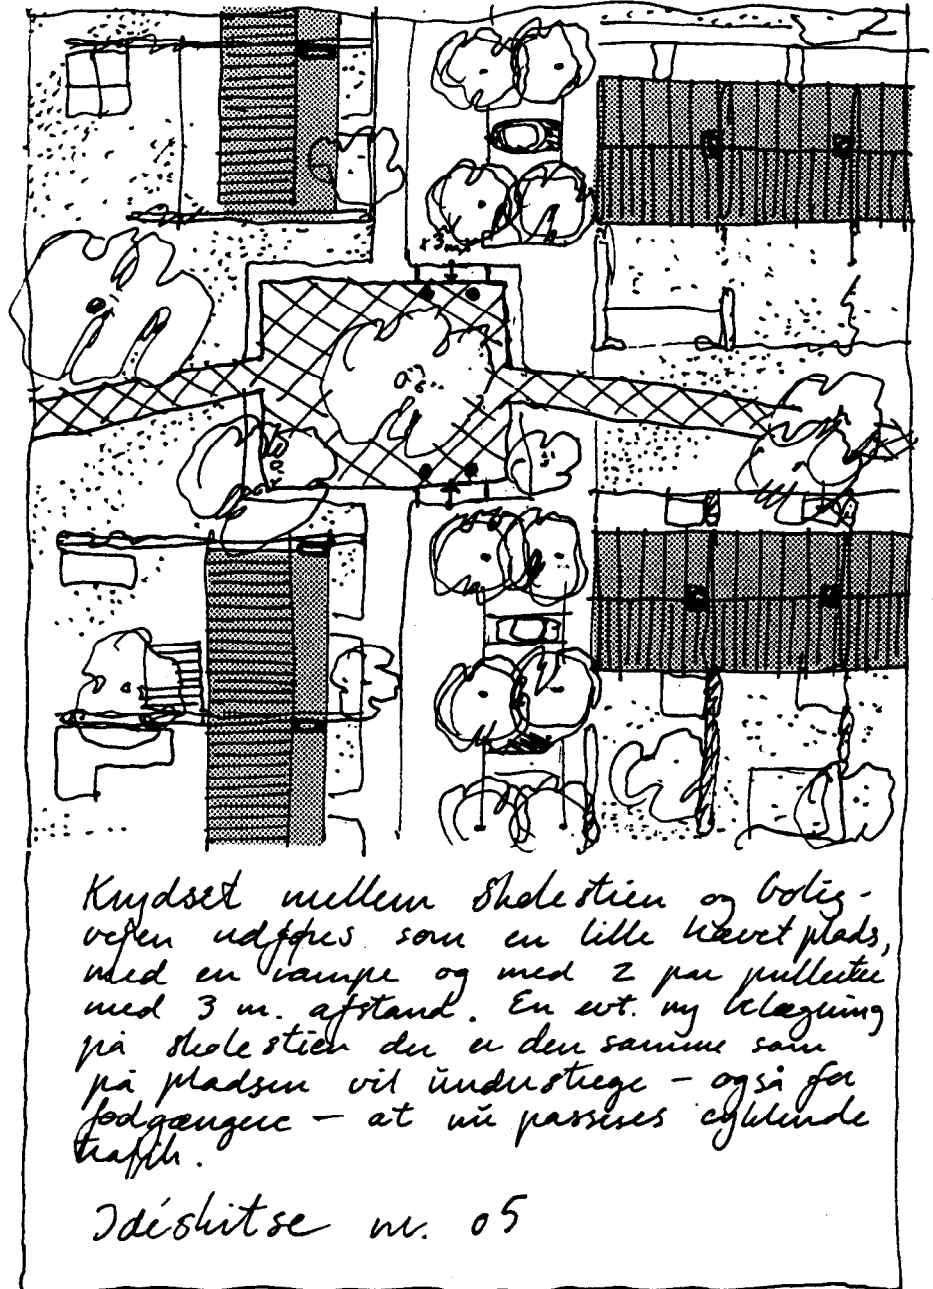 ± 3m
Krydset mellem skolestien og bolig-
vejen udføres som en lille hævet plads,
med en rampe og med 2 par pullerter
med 3 m. afstand. En evt. ny belægning
på skolestien der er den samme som
på pladsen vil understrege – også for
fodgængere – at nu passeres cyklende
trafik.
Idéskitse nr. 05